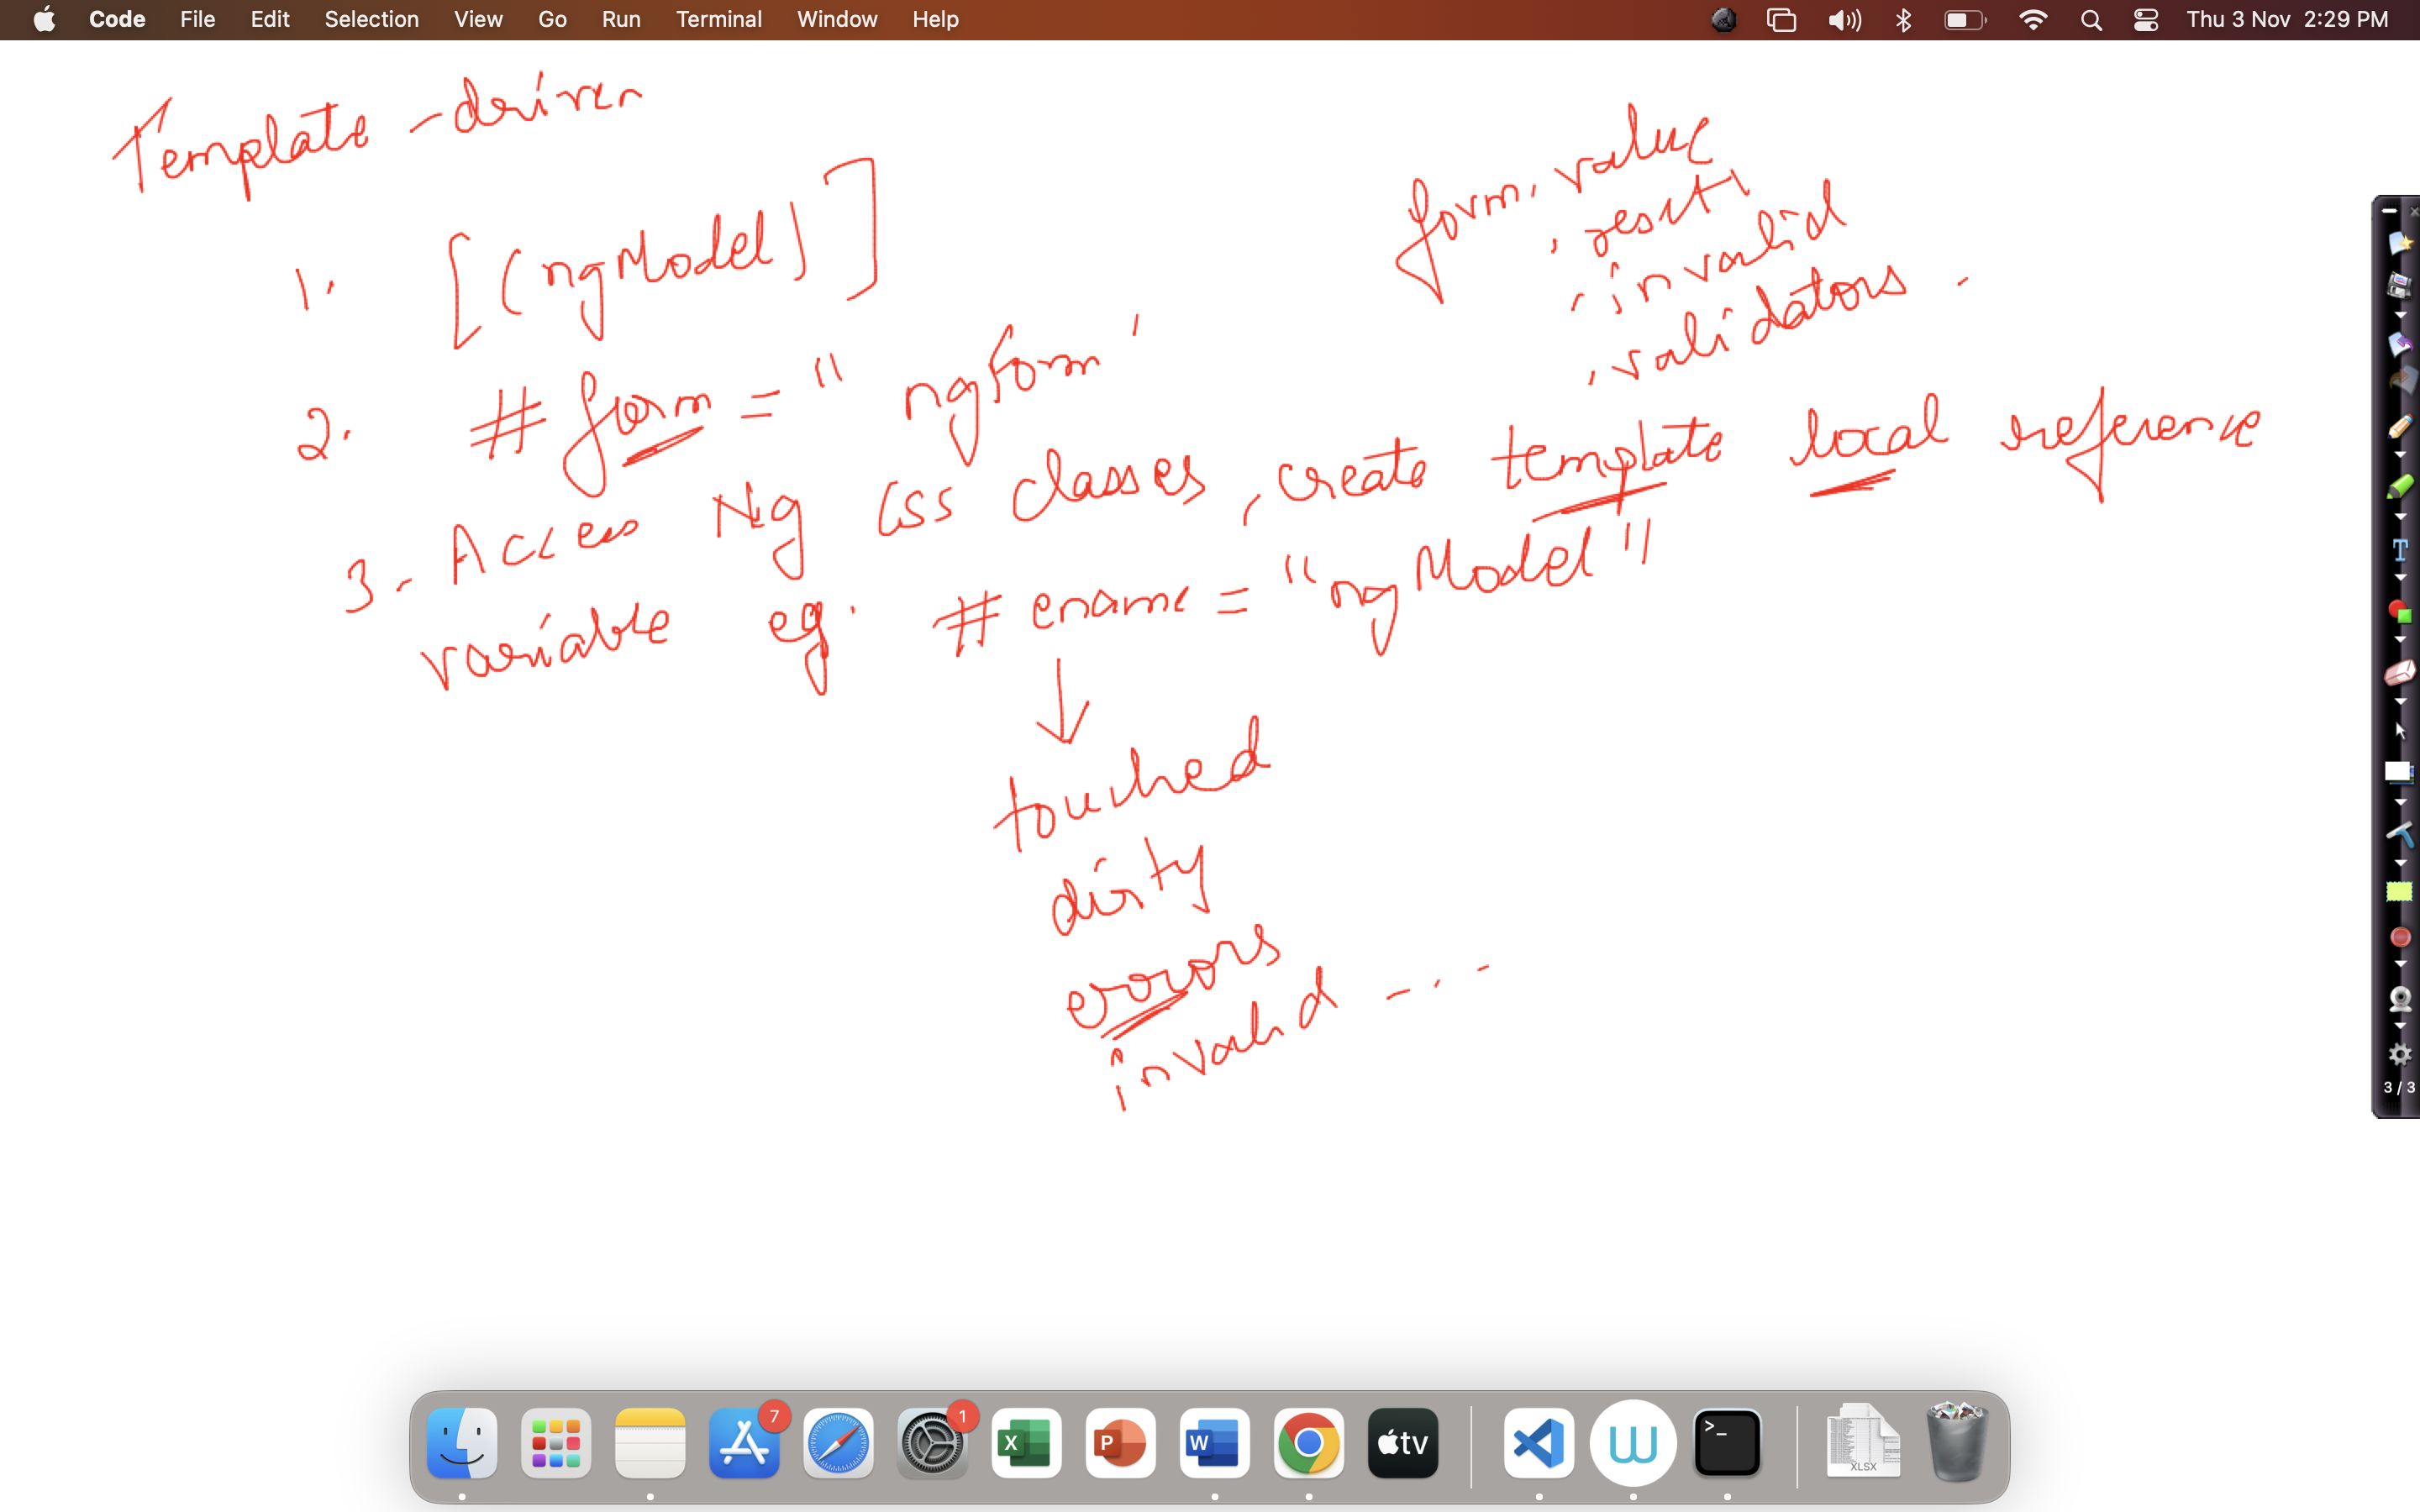 Code File Edit Selection View Go Run Terminal Window Help Thu 3 Nov 2:29 PM
Template - driven
form. value
. reset
. invalid
. validators -
1. [(ngModel)]
2. # form = " ngForm '
3- Access Ng CSS classes, create template local reference
variable eg. # ename = "ngModel"
touched
dirty
errors
invalid - . -
3 / 3
7
1
X
P
W
tv
W
>_
XLSX